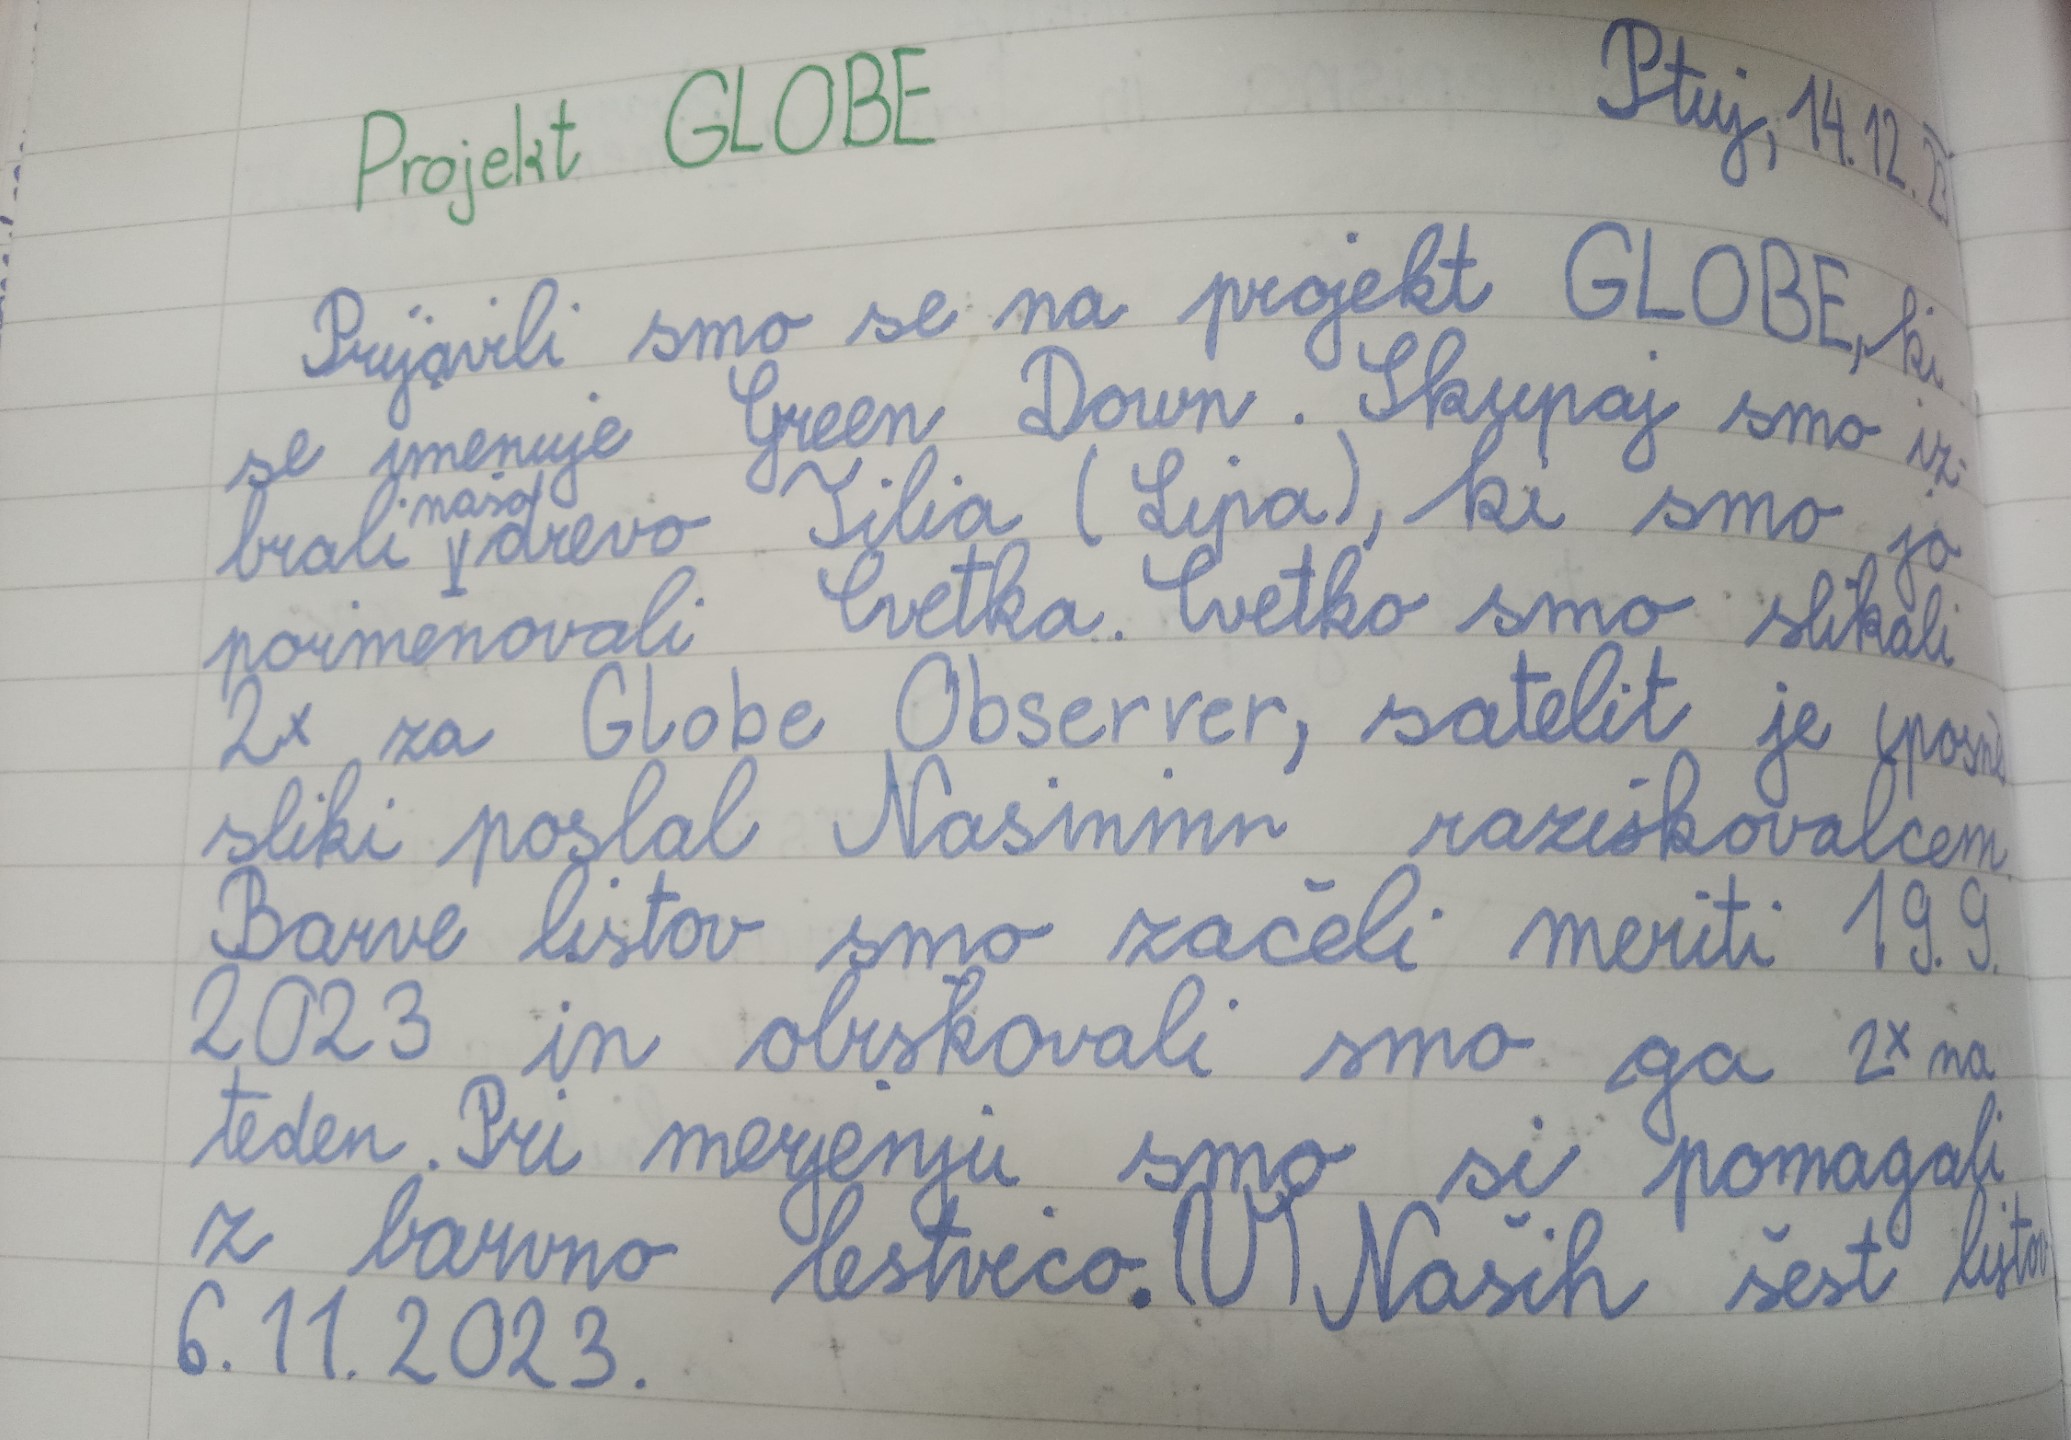 Projekt GLOBE
Ptuj, 14.12.
Prijavili smo se na projekt GLOBE, ki
se imenuje Green Down. Skupaj smo iz-
brali naša drevo Tilia (Lipa), ki smo jo
poimenovali Cvetka. Cvetko smo slikali
2x za Globe Observer, satelit je
sliki poslal Nasininin raziskovalcem.
Barve listov smo začeli meriti 19.9.
2023 in obiskovali smo ga 2x na
teden. Pri merjenju smo si pomagali
z barvno lestvico. (V) Naših šest listov
6.11.2023.